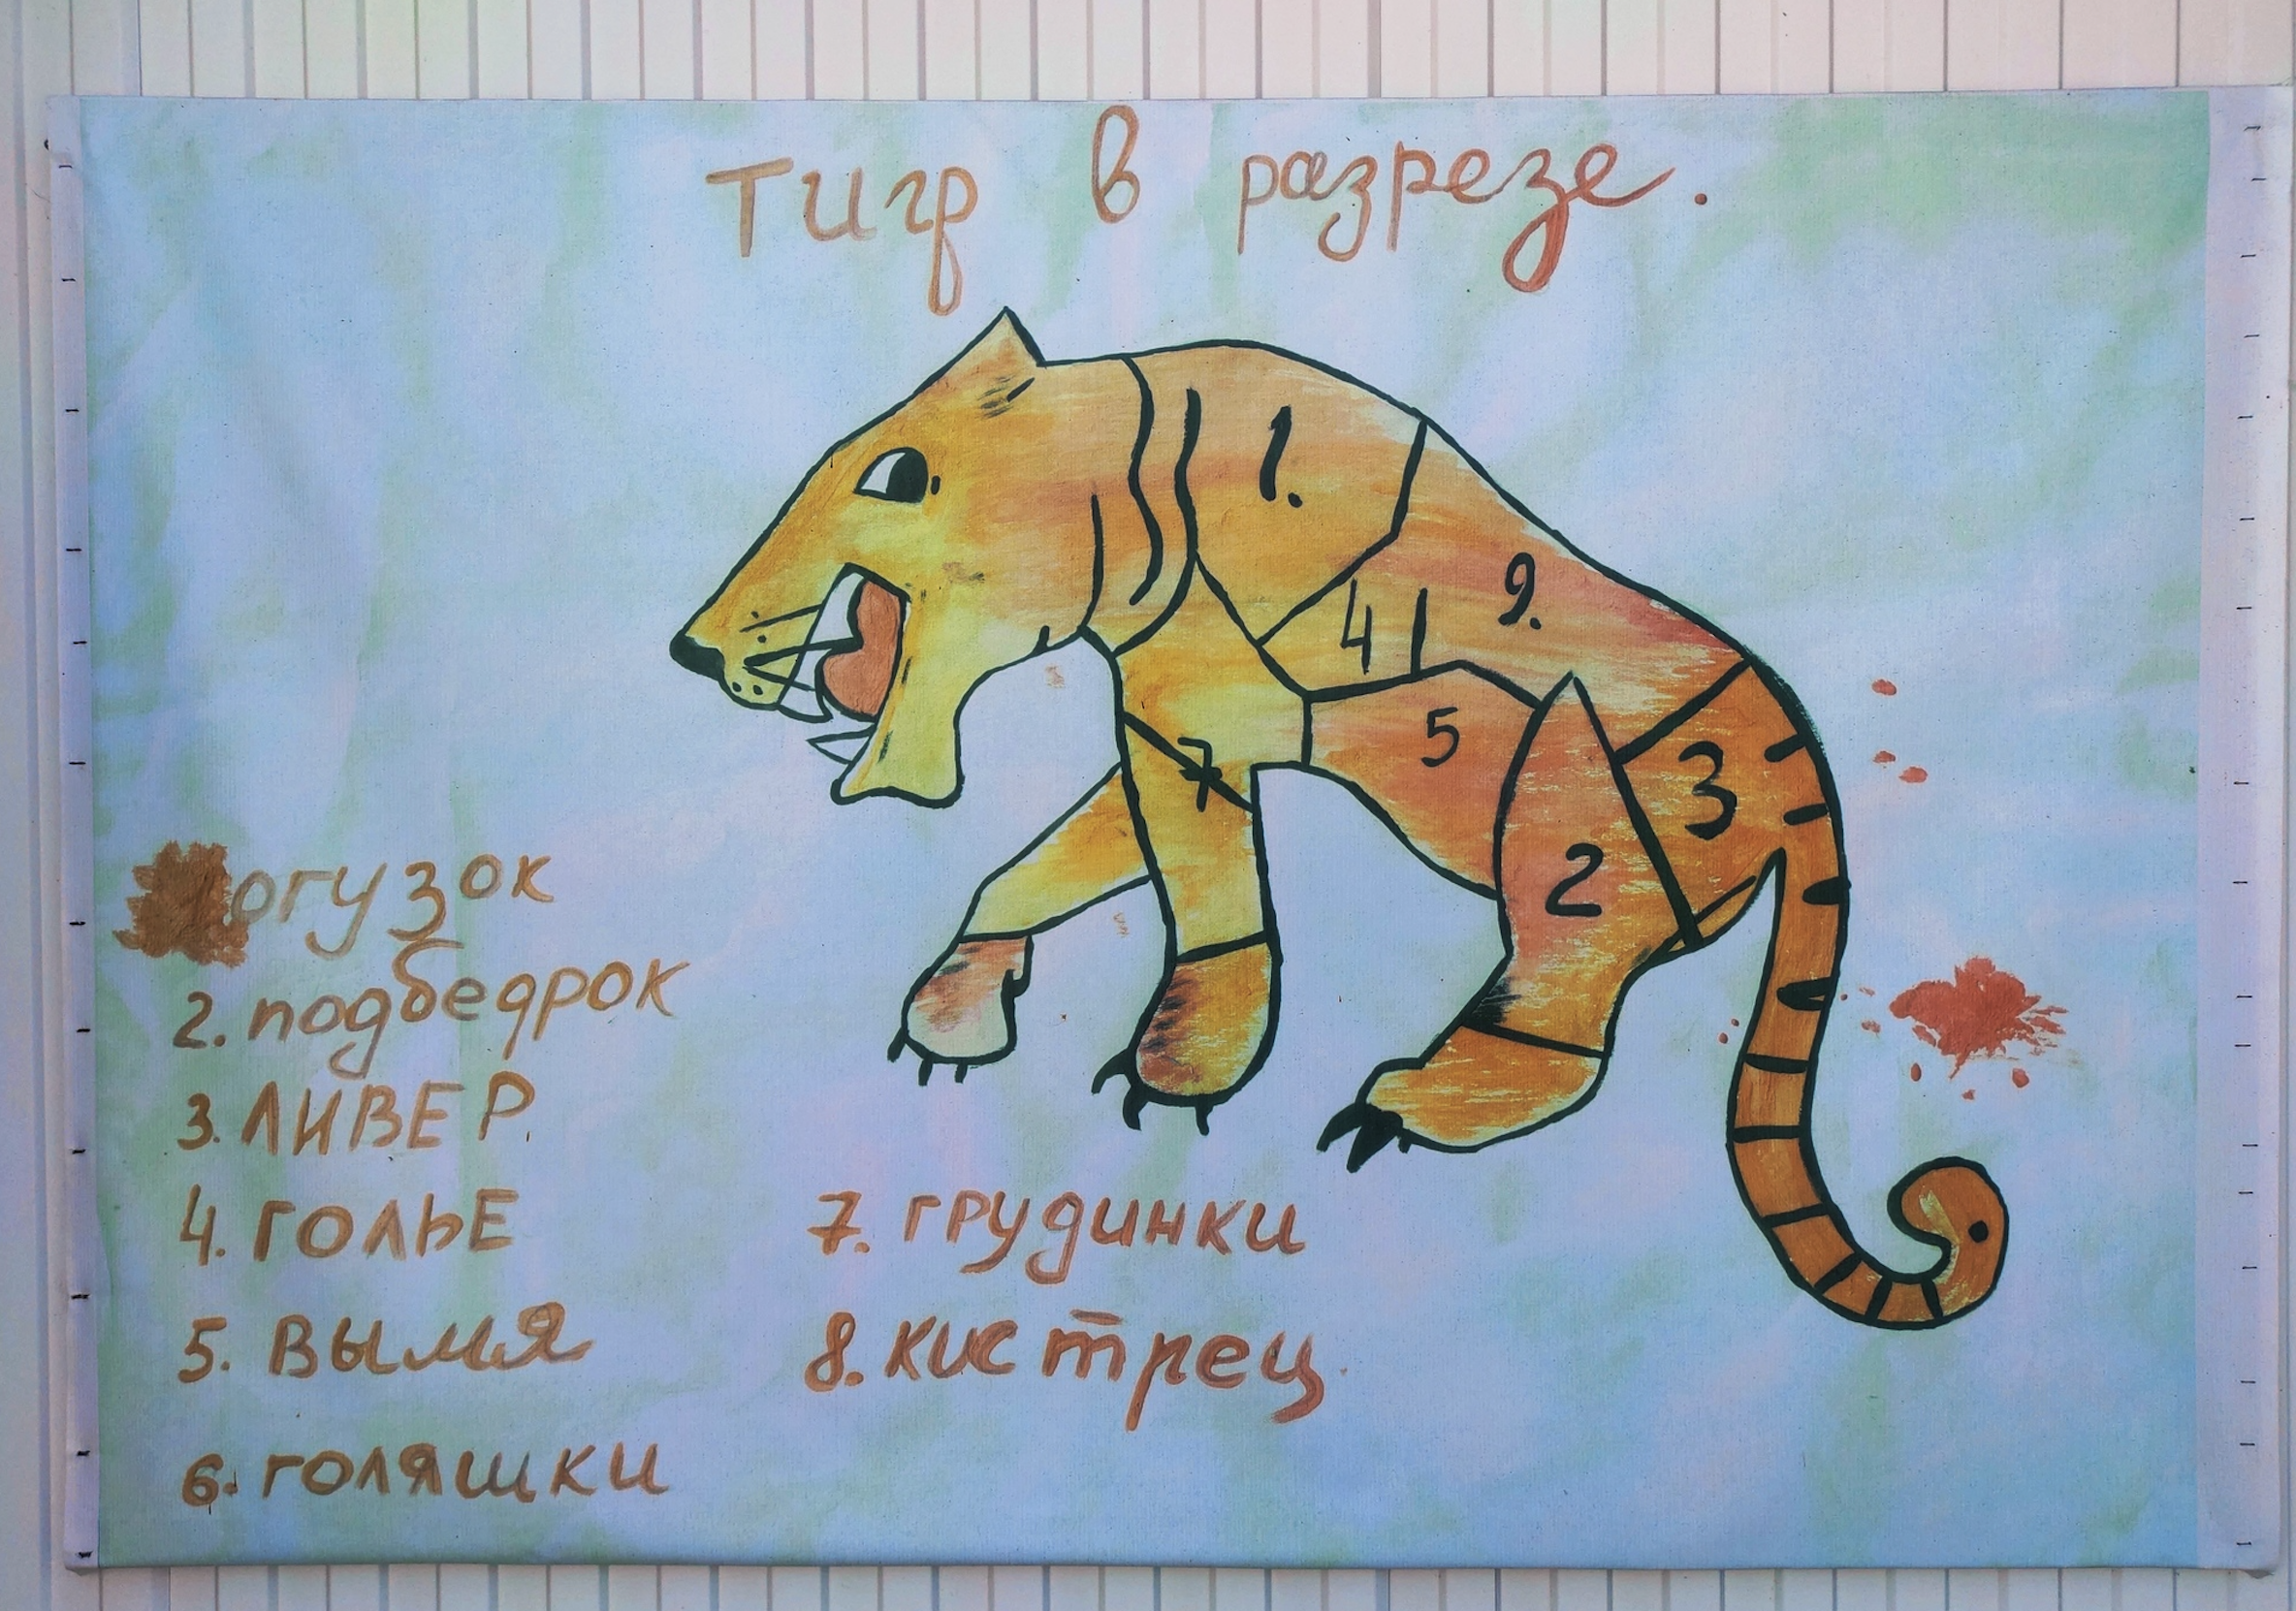 Тигр в разрезе.
1.
9.
4
5
7
3
2
огузок
2. подбедрок
3. ЛИВЕР.
4. ГОЛЬЕ
5. Вымя
6. голяшки
7. грудинки
8. кистрец